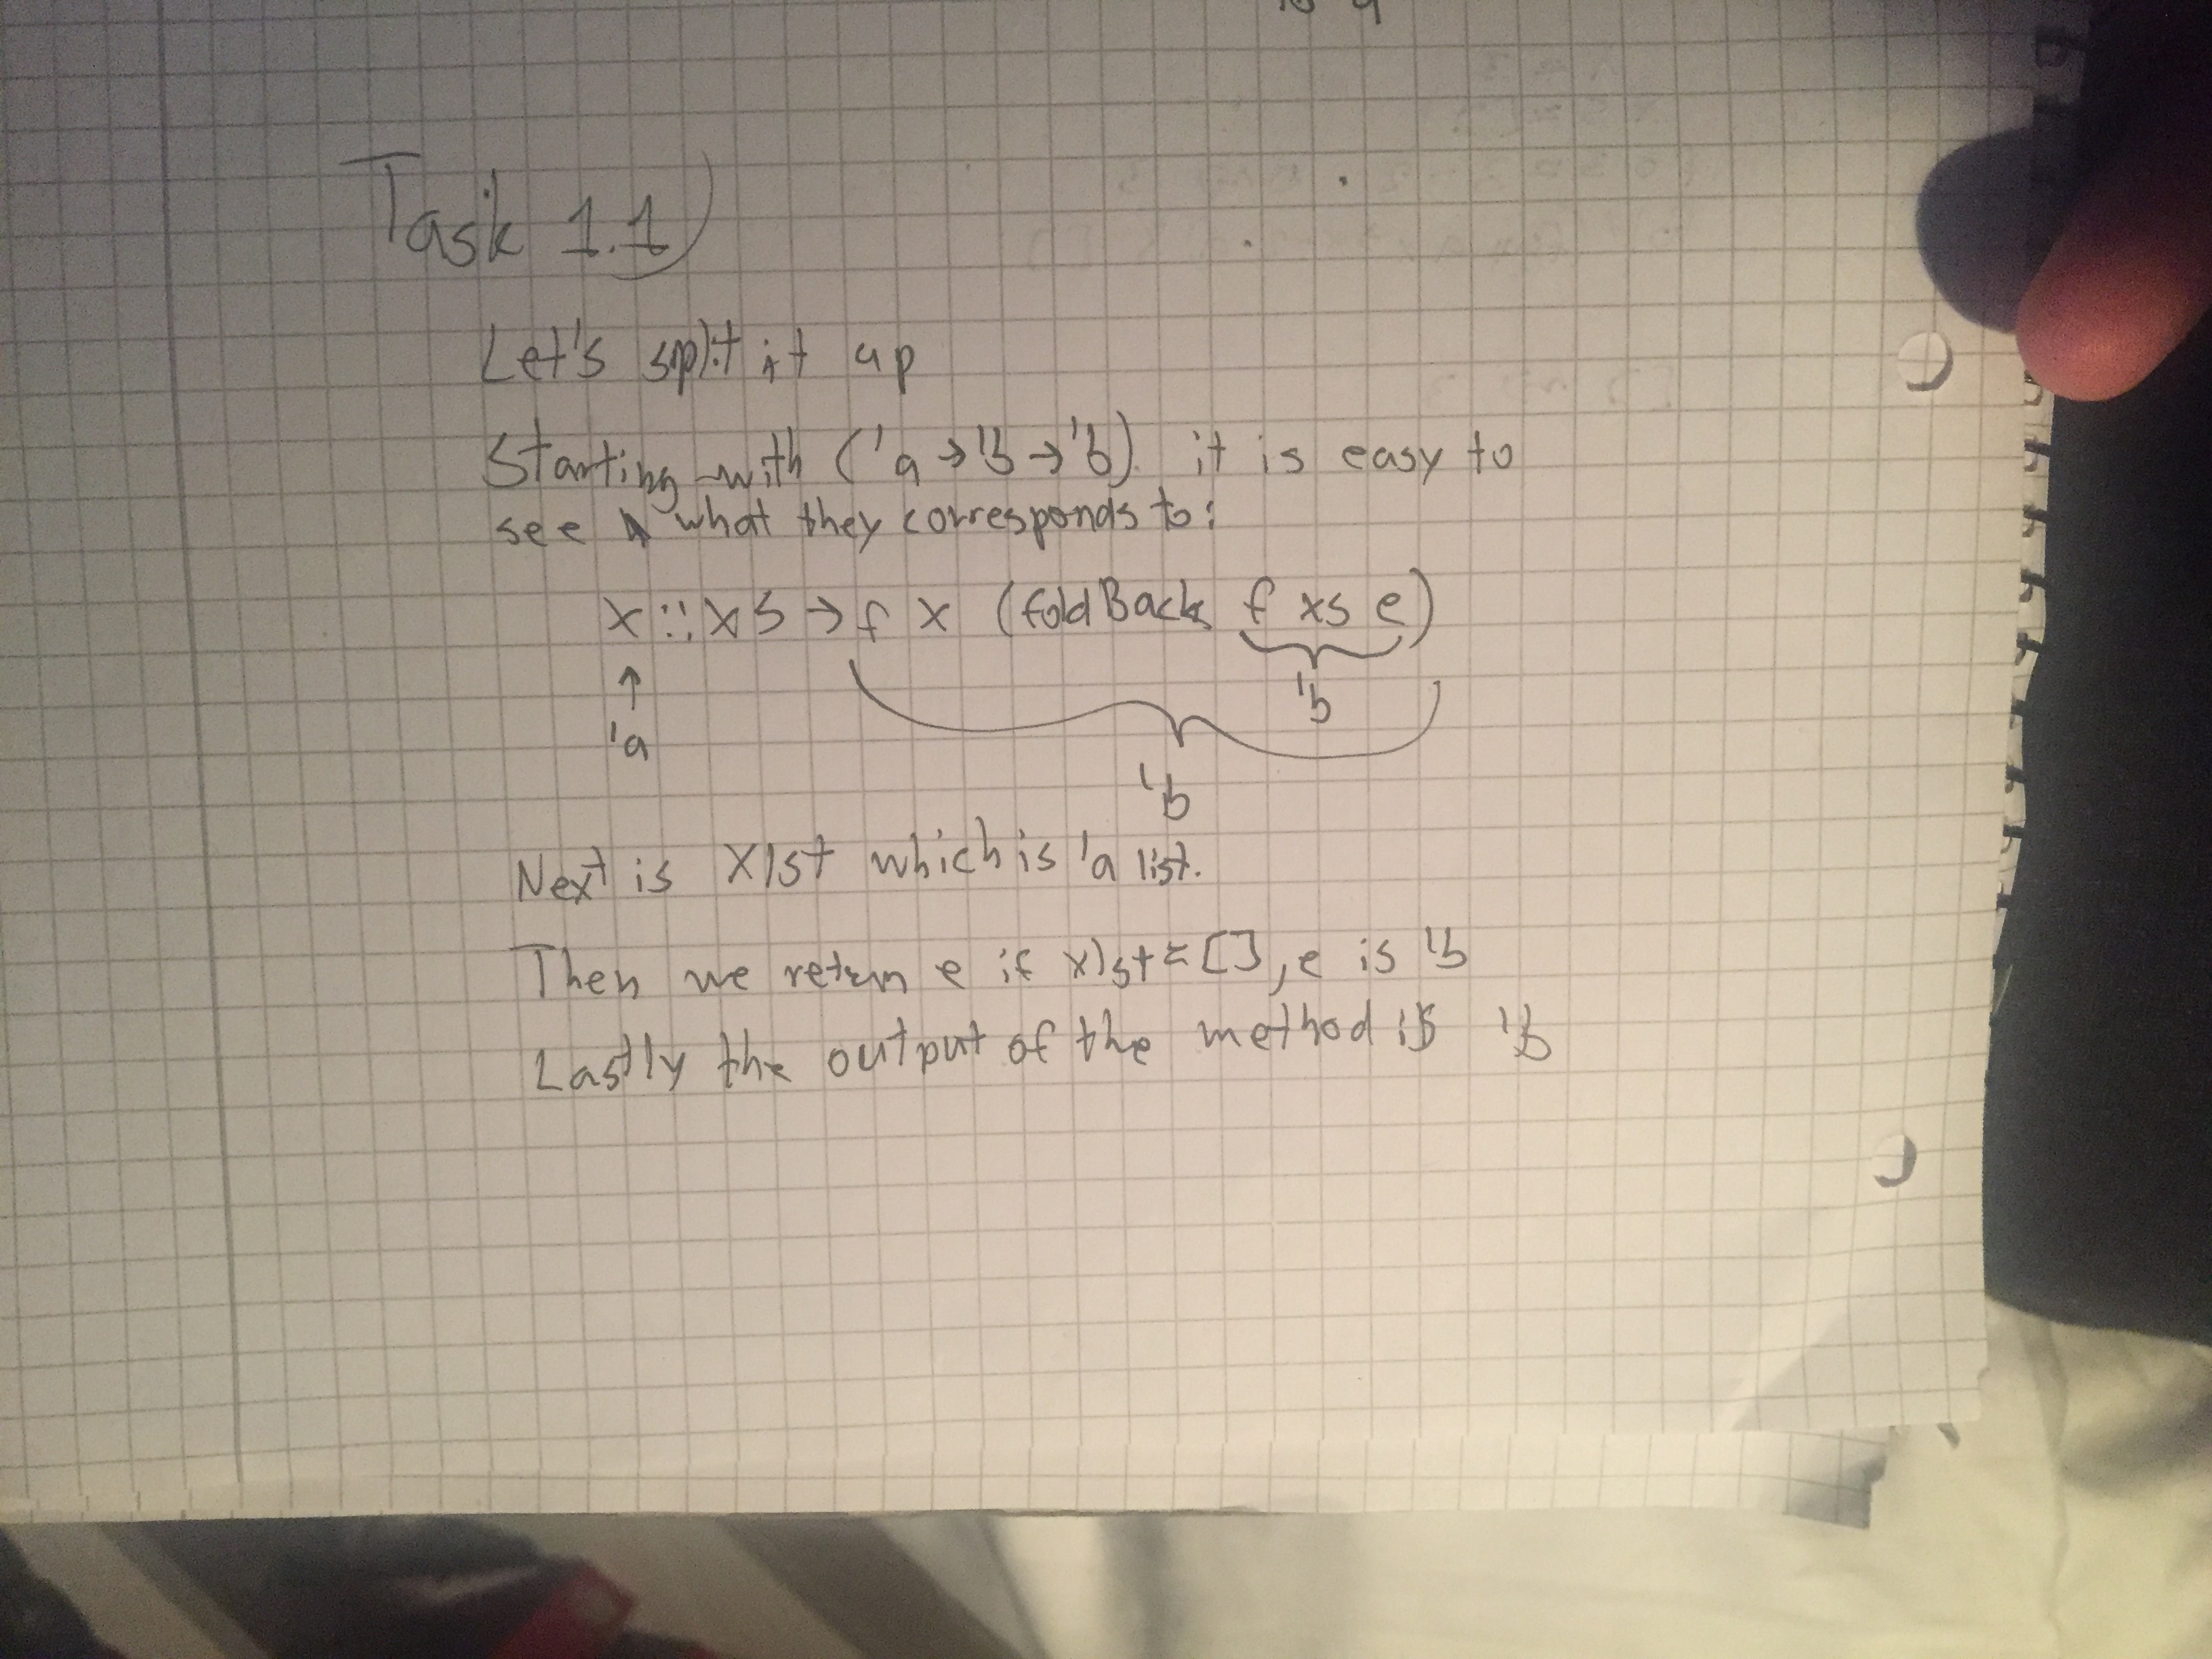 Task 1.1)
Let's split it up
Starting with ('a → 'b → 'b) it is easy to
see what they corresponds to:
x::xs → f x (foldBack f xs e)
↑
'b
'a
'b
Next is xlst which is 'a list.
Then we return e if xlst = [], e is 'b
Lastly the output of the method is 'b